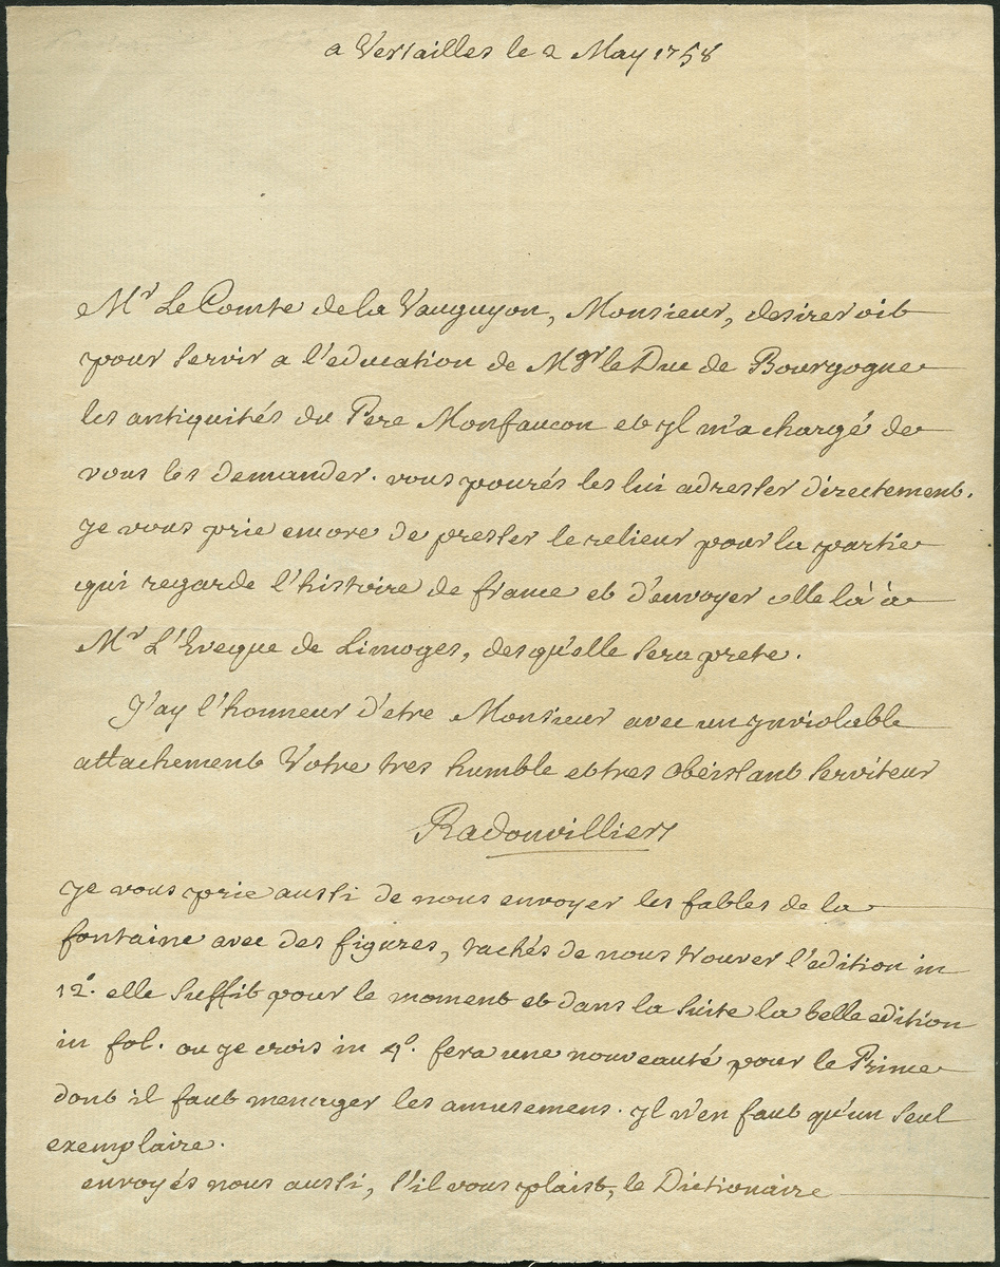 a Versailles le 2 May 1758
Mr Le Comte de la Vauguyon, Monsieur, desireroit
pour servir a l'education de Mgr le Duc de Bourgogne
les antiquités du Pere Monfaucon et yl m'a chargé de
vous les demander. vous pourés les lui adresser directement.
je vous prie encore de presser le relieur pour la partie
qui regarde l'histoire de france et d'envoyer celle là à
Mr L'Eveque de Limoges, des qu'elle sera prete.
J'ay l'honneur d'etre Monsieur avec un ynviolable
attachement Votre tres humble et tres obéissant serviteur
Radonvilliers
je vous prie aussi de nous envoyer les fables de la
fontaine avec des figures, tachés de nous trouver l'edition in
12º. elle suffit pour le moment et dans la suite la belle edition
in fol. ou je crois in 4º. fera une nouveauté pour le Prince
dont il faut menager les amusemens. yl n'en faut qu'un seul
exemplaire.
envoyés nous aussi, s'il vous plaist, le Dictionaire